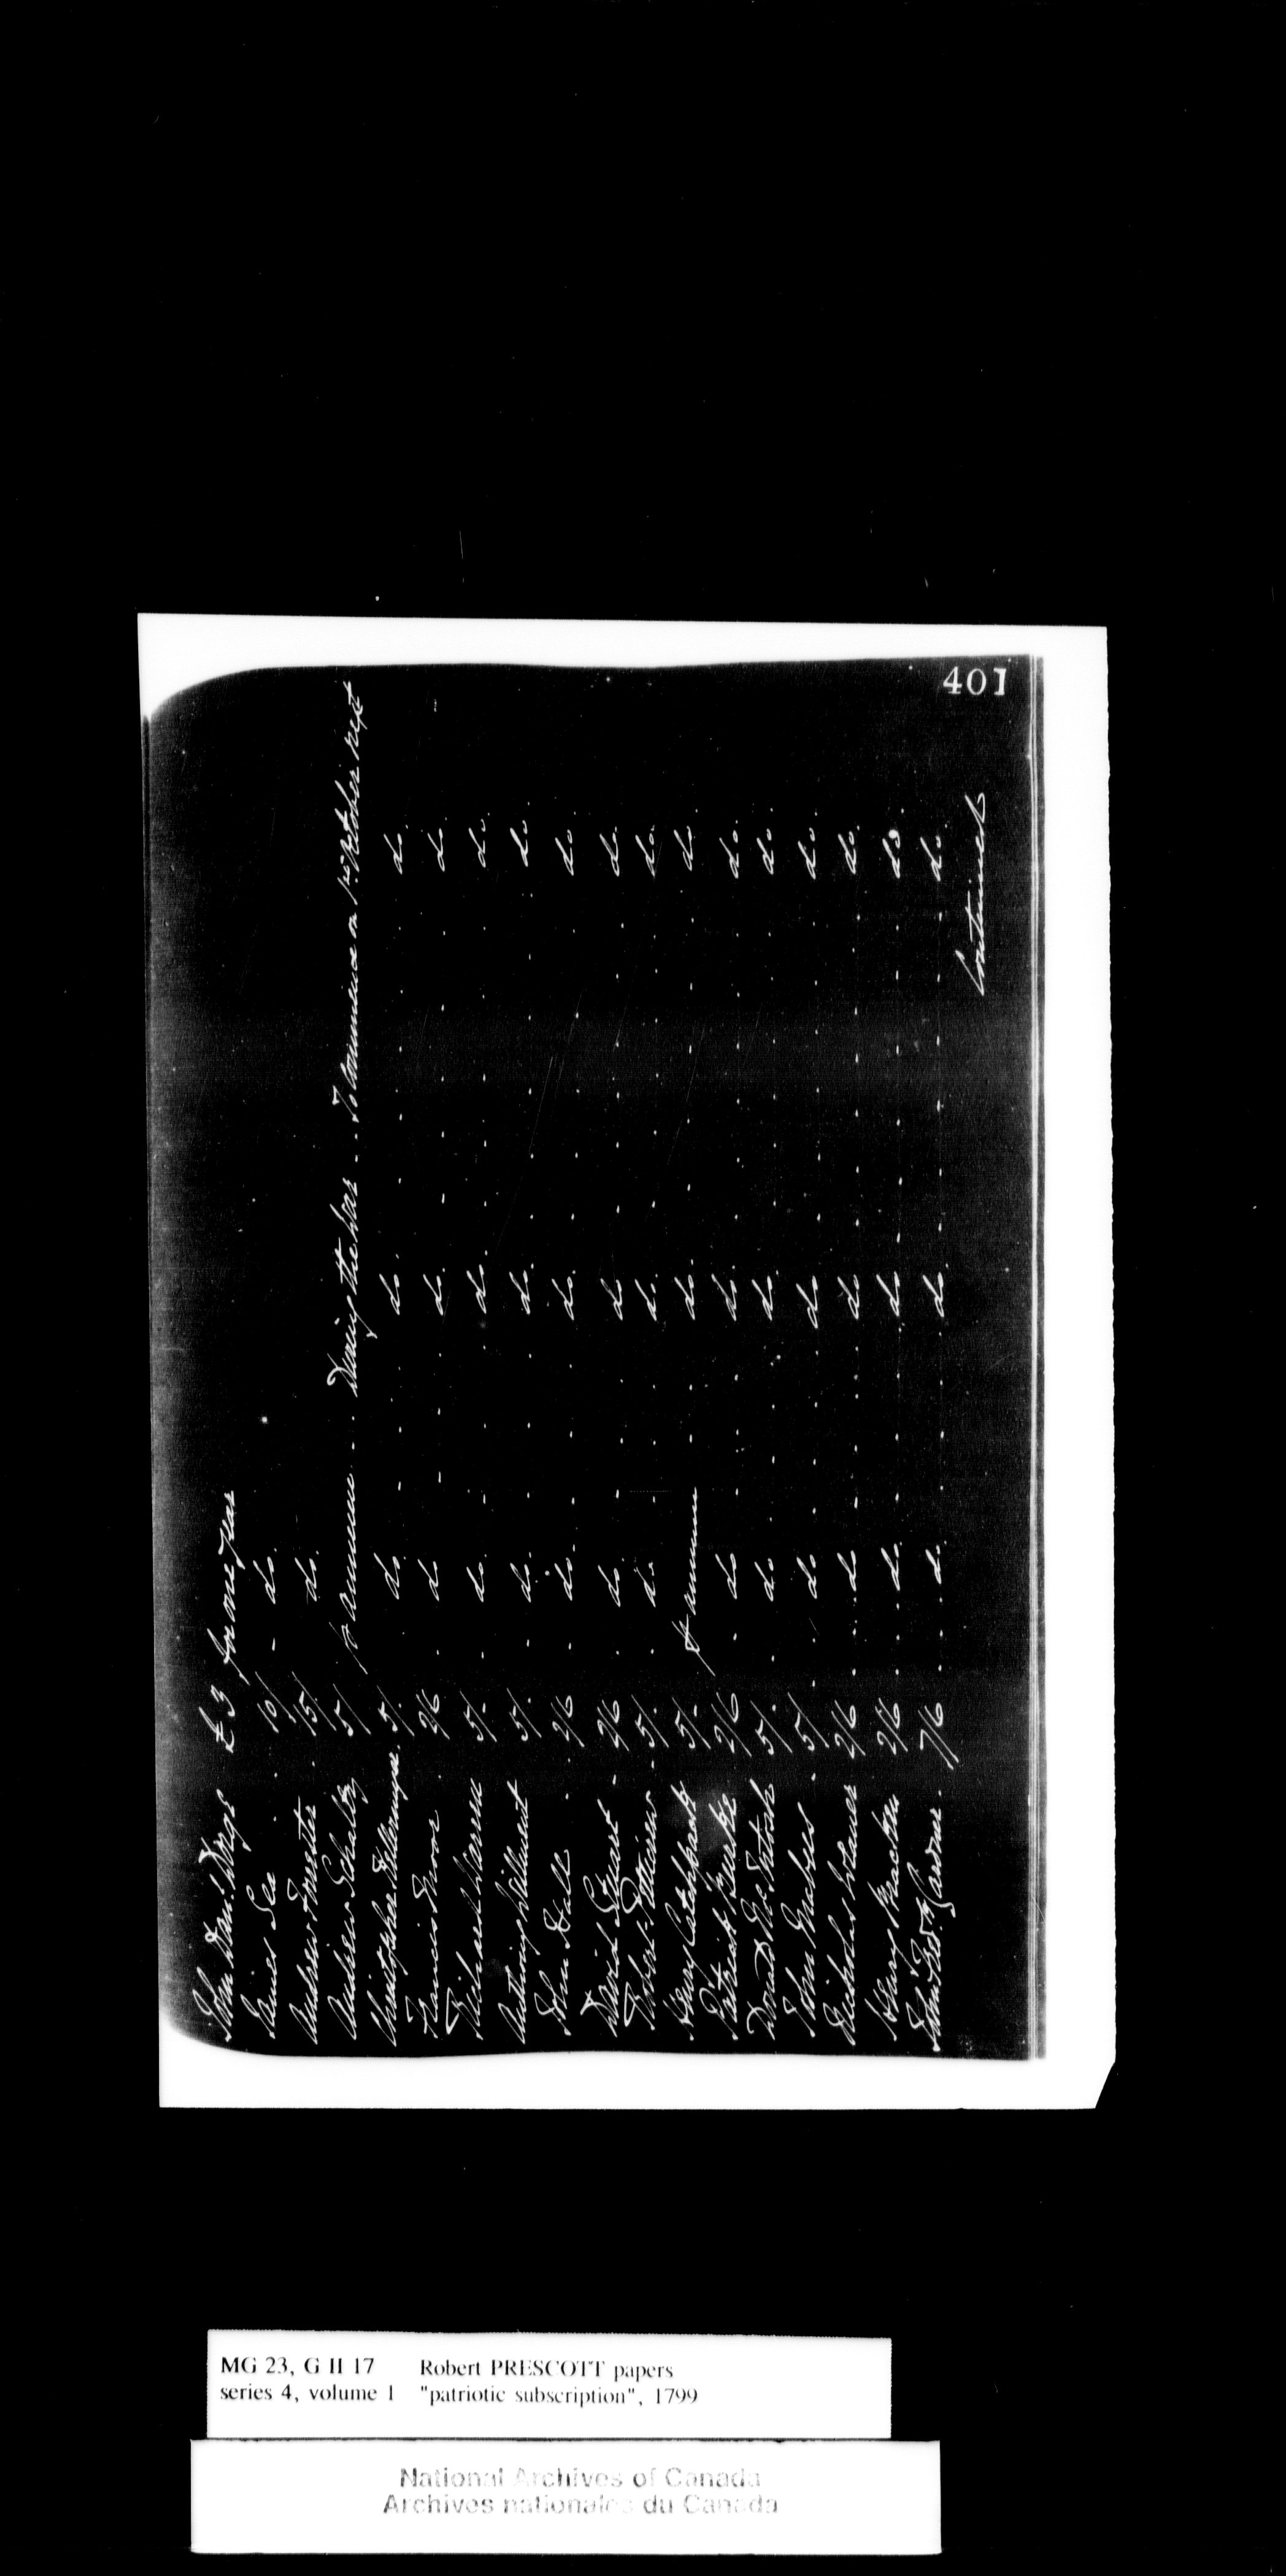 401
John Danl. £3 for one Year
James 10/ - do.
Andrew Forester 15/. do.
Andrew Schultz 5/ p annum - During the War - To Commence on 1st October next
Christopher 5/. do. do. do.
Francis Moor 2/6 do do. do.
Richard Warren 5/. do. do. do.
Antony Willment 5/. do. do. do.
John Hall 2/6 do. do. do.
David Stuart 2/6 do. do do.
Robert 5/. do. do. do.
Henry Catchpank 5/. p annum do. do.
Patrick Burke 2/6 do do. do.
Donald McIntosh 5/. do. do. do.
John 5/. do do do.
Nicholas 2/6 do do do.
Henry 2/6 do. do do.
7/6 do. do do.
Continued
MG 23, G II 17 Robert PRESCOTT papers
series 4, volume 1 "patriotic subscription", 1799
National Archives of Canada
Archives nationales du Canada